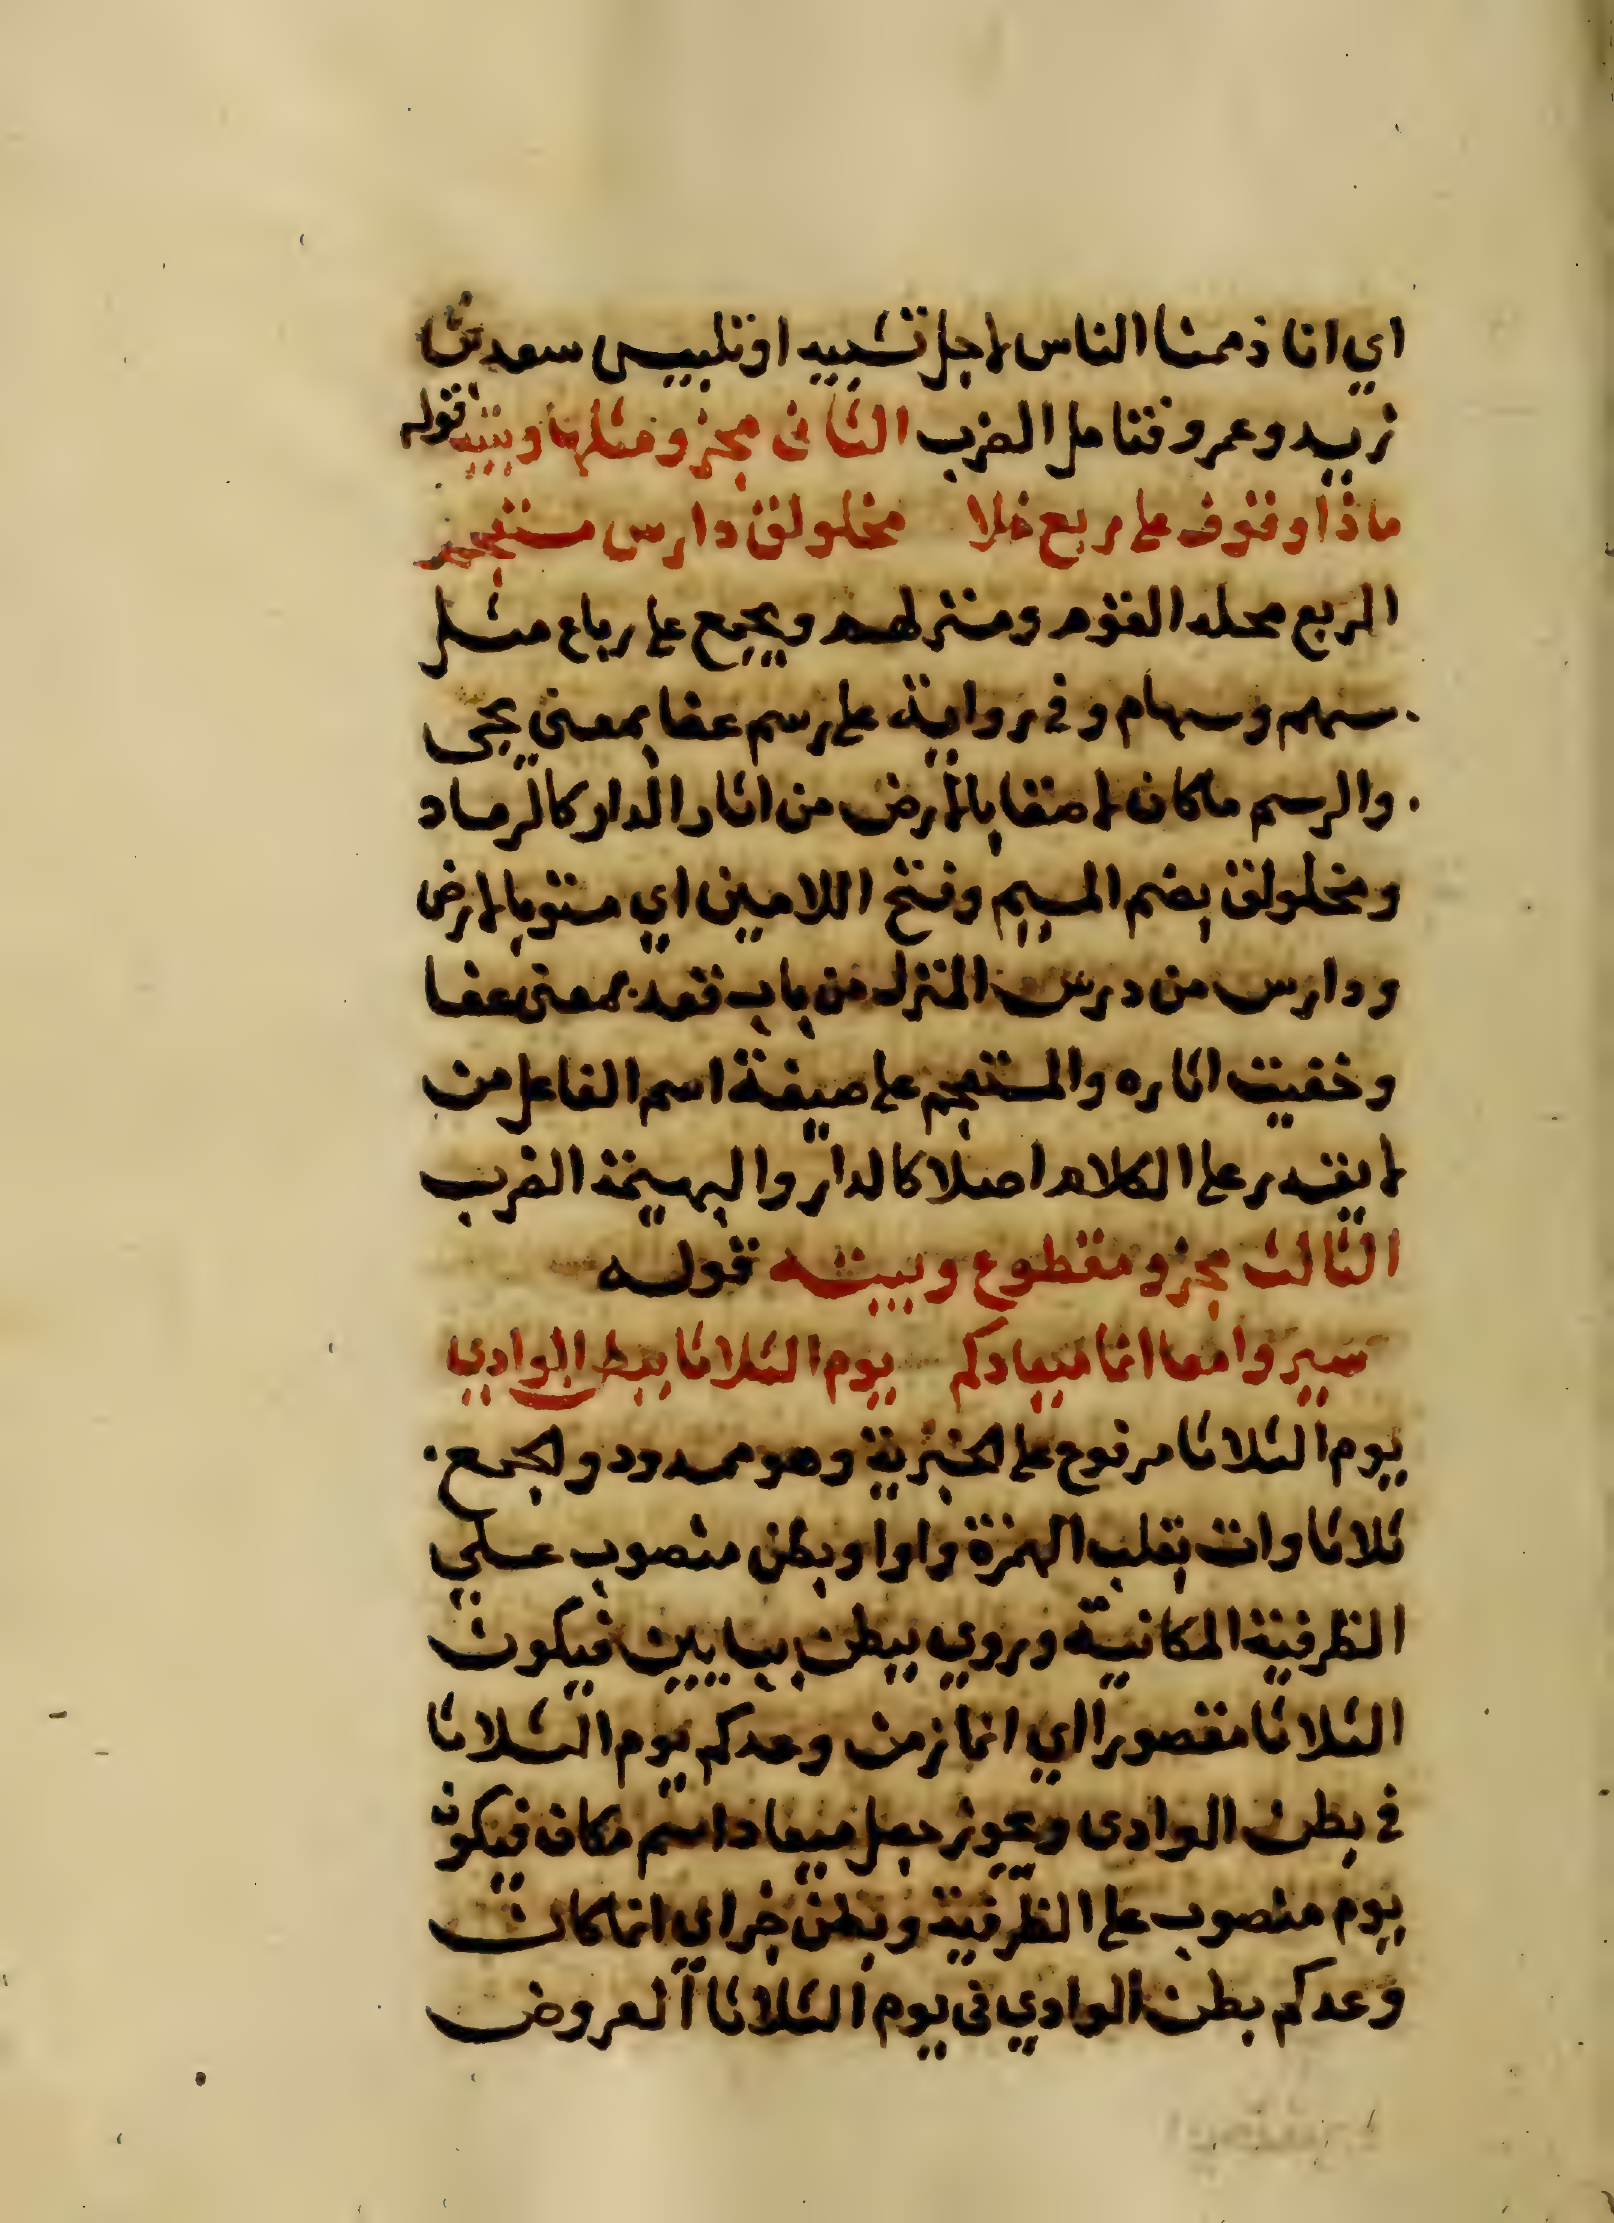 اي انا ذممنا الناس لاجل تشبيه او تلبيس سعد بن
زيد وعمرو فتامل الضرب الثاني مجزو مثلها وبيته قوله
ماذا وقوف على ربع خلا مخلولق دارس مستعجم
الربع محله القوم ومنزلهم ويجمع على رباع مثل
سهم وسهام وفي رواية على رسم عفا بمعنى يجى
والرسم ماكان لاصقا بالارض من اثار الدار كالرماد
ومخلولق بضم الميم وفتح اللامين اي مستو بالارض
ودارس من درس المنزل من باب قعد بمعنى عفا
وخفيت اثاره والمستعجم على صيغة اسم الفاعل من
لا يقدر على الكلام اصلا كالدار والبهيمة الضرب
الثالث مجزو مقطوع وبيته قوله
سيروا معا انما ميعادكم يوم الثلاثا ببطن الوادي
يوم الثلاثا مرفوع على الخبرية وهو ممدود والجمع
ثلاثاوات بقلب الهمزة واوا وبطن منصوب على
الظرفية المكانية وروي ببطن ببايين فيكون
الثلاثا مقصورا اي انما زمن وعدكم يوم الثلاثا
في بطن الوادى ويجوز جعل ميعاد اسم مكان فيكون
يوم منصوب على الظرفية وبطن خبر اي انما كان
وعدكم بطن الوادي في يوم الثلاثا العروض